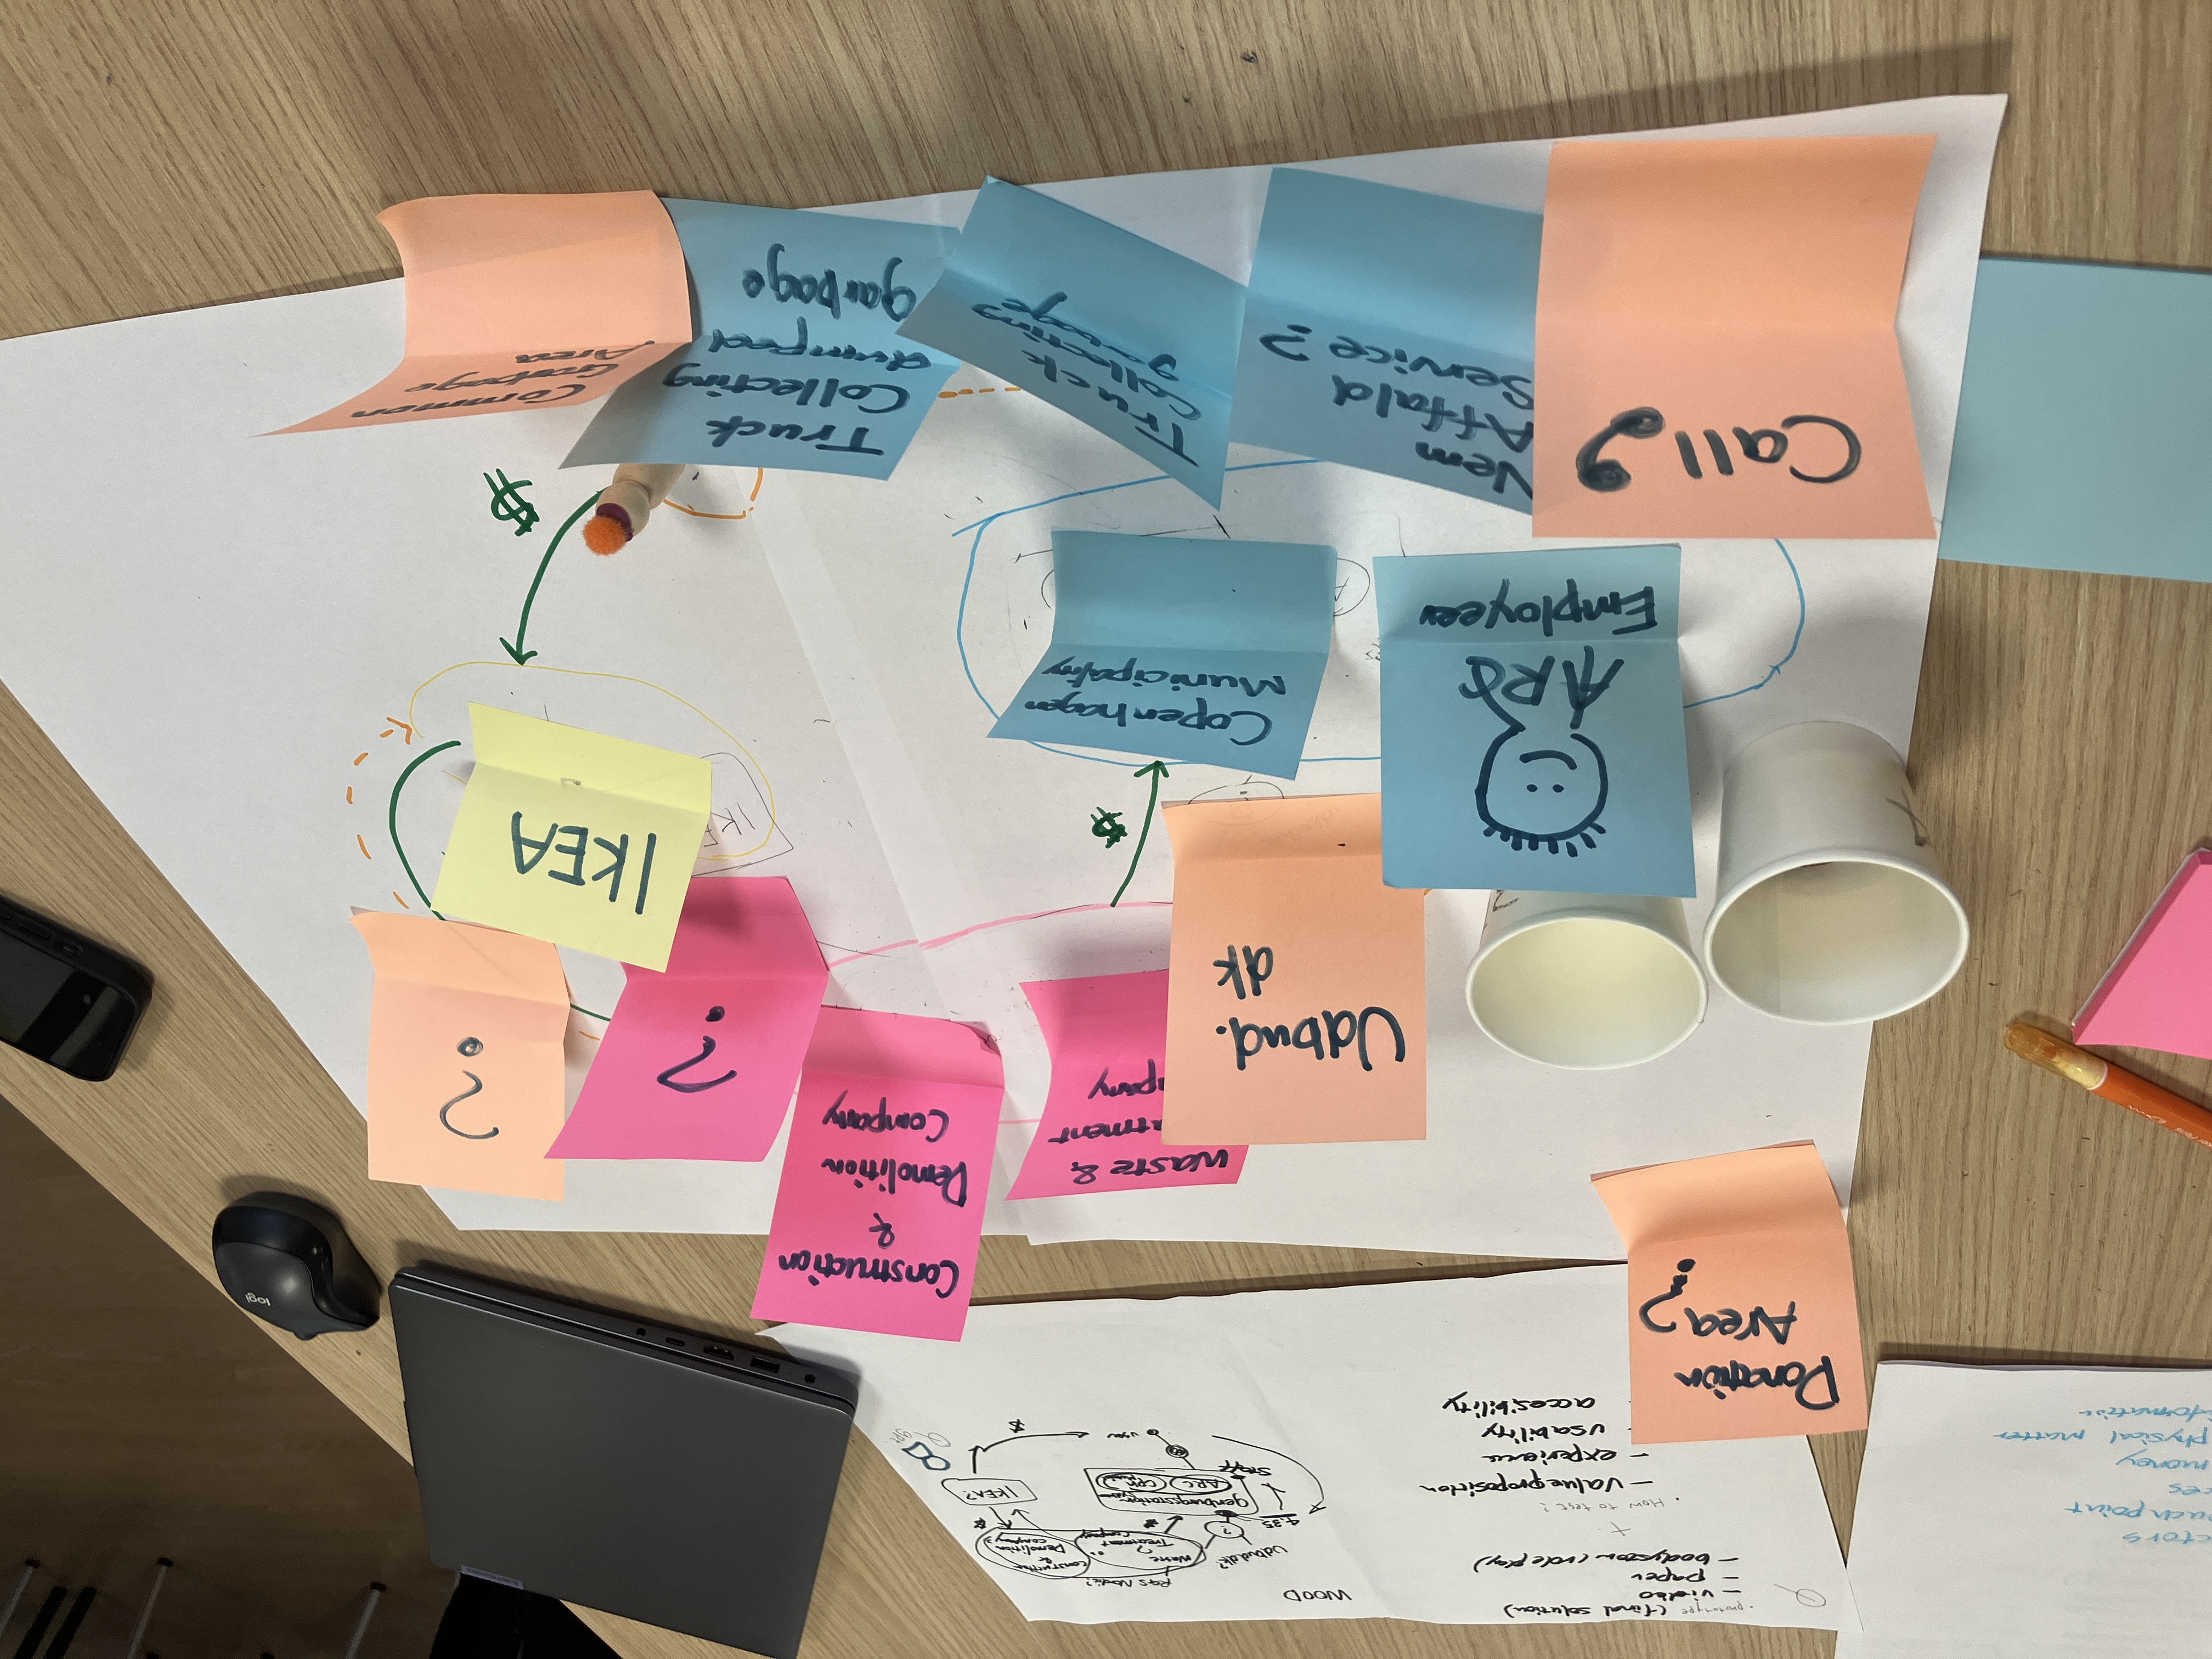 ctors
ouch point
ces
money
physical matter
information
prototype (final solution)
- video
- paper
- bodyston (role play)
+
. How to test?
- value proposition
- experience
- usability
accesibility
WOOD
RGS Nordic?
Udbud.dk?
Waste
?
Treatment
Company
Construction
&
Demolition
Company?
?
$
$
4.35
genburgsstation
ARC
CPH
Staff
IKEA?
user
$
Donation
Area?
Construction
&
Demolition
Company
Waste &
atment
mpany
?
?
Udbud.
dk
IKEA
IKE
$
ARC
Employeer
Copenhagen
Municipality
A
$
Call
Nem
Affald
Service?
Truck
Collecting
garbage
Truck
Collecting
dumped
garbage
Common
Garbage
Area
logi
Lenovo